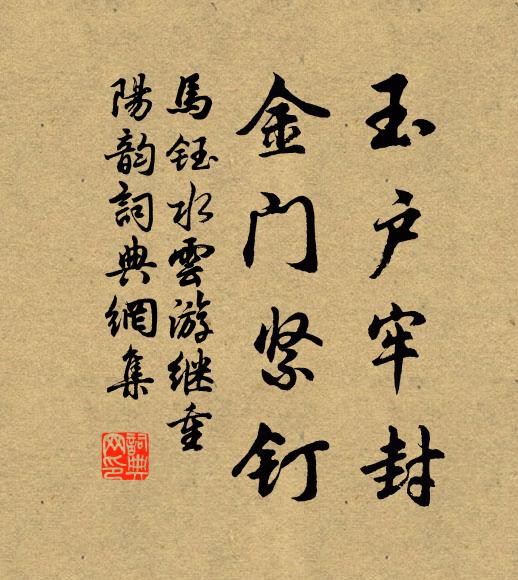 玉户牢封
金门紧钉
馬钰水雲游继重
陽韵詞典網集
詞典网印